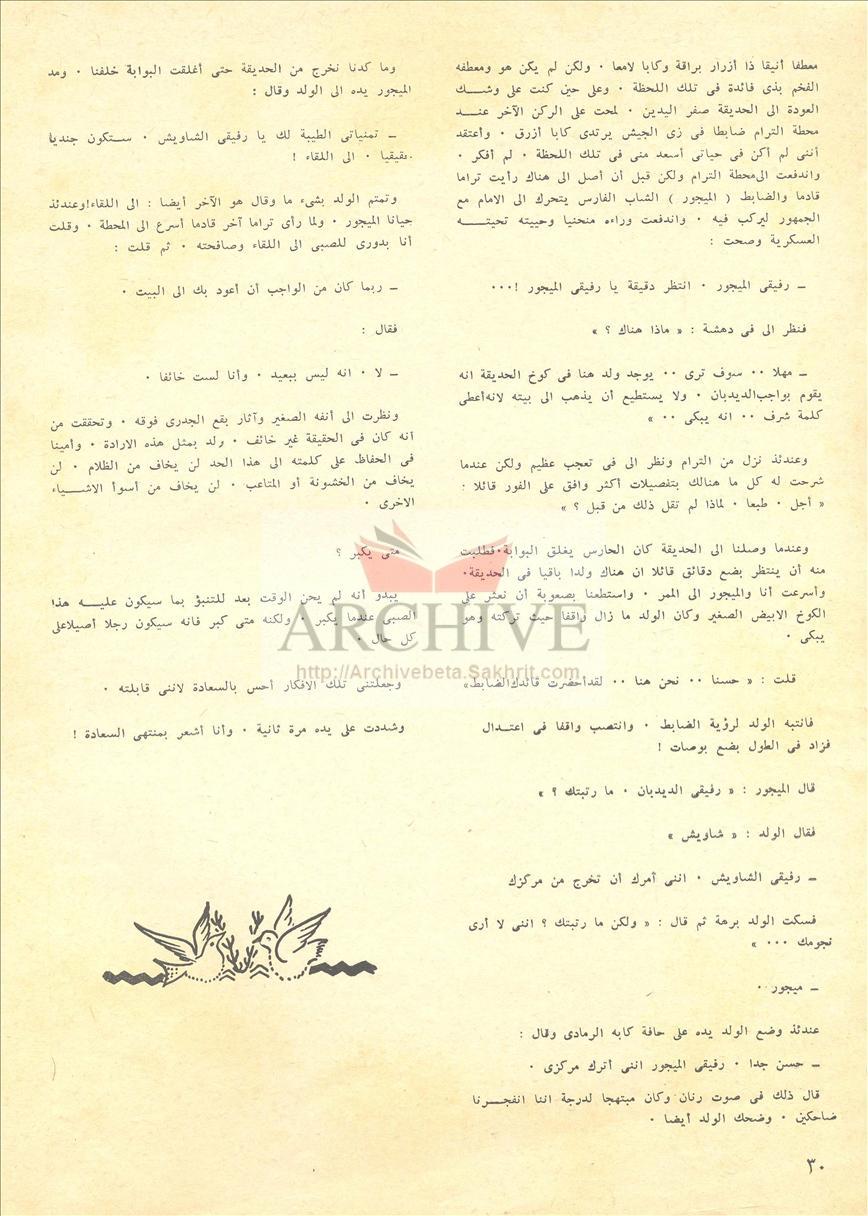 معطفا أنيقا ذا أزرار براقة وكابا لامعا ٠ ولكن لم يكن هو ومعطفه
الفخم بذى فائدة فى تلك اللحظة ٠ وعلى حين كنت على وشك
العودة الى الحديقة صفر اليدين ٠ لمحت على الركن الآخر عند
محطة الترام ضابطا فى زى الجيش يرتدى كابا أزرق ٠ وأعتقد
أننى لم أكن فى حياتى أسعد منى فى تلك اللحظة ٠ لم أفكر ٠
واندفعت الى المحطة الترام ولكن قبل أن أصل الى هناك رأيت تراما
قادما والضابط ( الميجور ) الشاب الفارس يتحرك الى الامام مع
الجمهور ليركب فيه ٠ واندفعت وراءه منحنيا وحييته تحيته
العسكرية وصحت :
ــ رفيقى الميجور ٠ انتظر دقيقة يا رفيقى الميجور !٠٠٠
فنظر الى فى دهشة : « ماذا هناك ؟ »
ــ مهلا ٠٠ سوف ترى ٠٠ يوجد ولد هنا فى كوخ الحديقة انه
يقوم بواجب الديدبان ٠ ولا يستطيع أن يذهب الى بيته لانه أعطى
كلمة شرف ٠٠ انه يبكى ٠٠ »
وعندئذ نزل من الترام ونظر الى فى تعجب عظيم ولكن عندما
شرحت له كل ما هنالك بتفصيلات أكثر وافق على الفور قائلا :
« أجل ٠ طبعا ٠ لماذا لم تقل ذلك من قبل ؟ »
وعندما وصلنا الى الحديقة كان الحارس يغلق البوابة ٠ فطلبت
منه أن ينتظر بضع دقائق قائلا ان هناك ولدا باقيا فى الحديقة ٠
وأسرعت أنا والميجور الى الممر ٠ واستطعنا بصعوبة أن نعثر على
الكوخ الابيض الصغير وكان الولد ما زال واقفا حيث تركته وهو
يبكى ٠
قلت : « حسنا ٠٠ نحن هنا ٠٠ لقد أحضرت قائدك الضابط»
فانتبه الولد لرؤية الضابط ٠ وانتصب واقفا فى اعتدال
فزاد فى الطول بضع بوصات !
قال الميجور : « رفيقى الديدبان ٠ ما رتبتك ؟ »
فقال الولد : « شاويش »
ــ رفيقى الشاويش ٠ اننى آمرك أن تخرج من مركزك
فسكت الولد برهة ثم قال : « ولكن ما رتبتك ؟ اننى لا أرى
نجومك ٠٠٠ »
ــ ميجور ٠
عندئذ وضع الولد يده على حافة كابه الرمادى وقال :
ــ حسن جدا ٠ رفيقى الميجور اننى أترك مركزى ٠
قال ذلك فى صوت رنان وكان مبتهجا لدرجة اننا انفجرنا
ضاحكين ٠ وضحك الولد أيضا ٠
وما كدنا نخرج من الحديقة حتى أغلقت البوابة خلفنا ٠ ومد
الميجور يده الى الولد وقال :
ــ تمنياتى الطيبة لك يا رفيقى الشاويش ٠ ستكون جنديا
حقيقيا ٠ الى اللقاء !
وتمتم الولد بشىء ما وقال هو الآخر أيضا : الى اللقاء! وعندئذ
حيانا الميجور ٠ ولما رأى تراما آخر قادما أسرع الى المحطة ٠ وقلت
أنا بدورى للصبى الى اللقاء وصافحته ٠ ثم قلت :
ــ ربما كان من الواجب أن أعود بك الى البيت ٠
فقال :
ــ لا ٠ انه ليس ببعيد ٠ وأنا لست خائفا ٠
ونظرت الى أنفه الصغير وآثار بقع الجدرى فوقه ٠ وتحققت من
أنه كان فى الحقيقة غير خائف ٠ ولد بمثل هذه الارادة ٠ وأمينا
فى الحفاظ على كلمته الى هذا الحد لن يخاف من الظلام ٠ لن
يخاف من الخشونة أو المتاعب ٠ لن يخاف من أسوأ الاشياء
الاخرى ٠
متى يكبر ؟
يبدو أنه لم يحن الوقت بعد للتنبؤ بما سيكون عليه هذا
الصبى عندما يكبر ٠ ولكنه متى كبر فانه سيكون رجلا أصيلا على
كل حال ٠
وجعلتنى تلك الافكار أحس بالسعادة لاننى قابلته ٠
وشددت على يده مرة ثانية ٠ وأنا أشعر بمنتهى السعادة !
ARCHIVE
http://Archivebeta.Sakhrit.com
٣٠